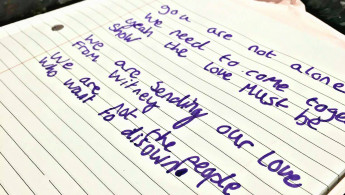 you are not alone
We need to come toge
yeah the love must be
show
We are sending our love
From Witney
We are not the people
who want to disown.